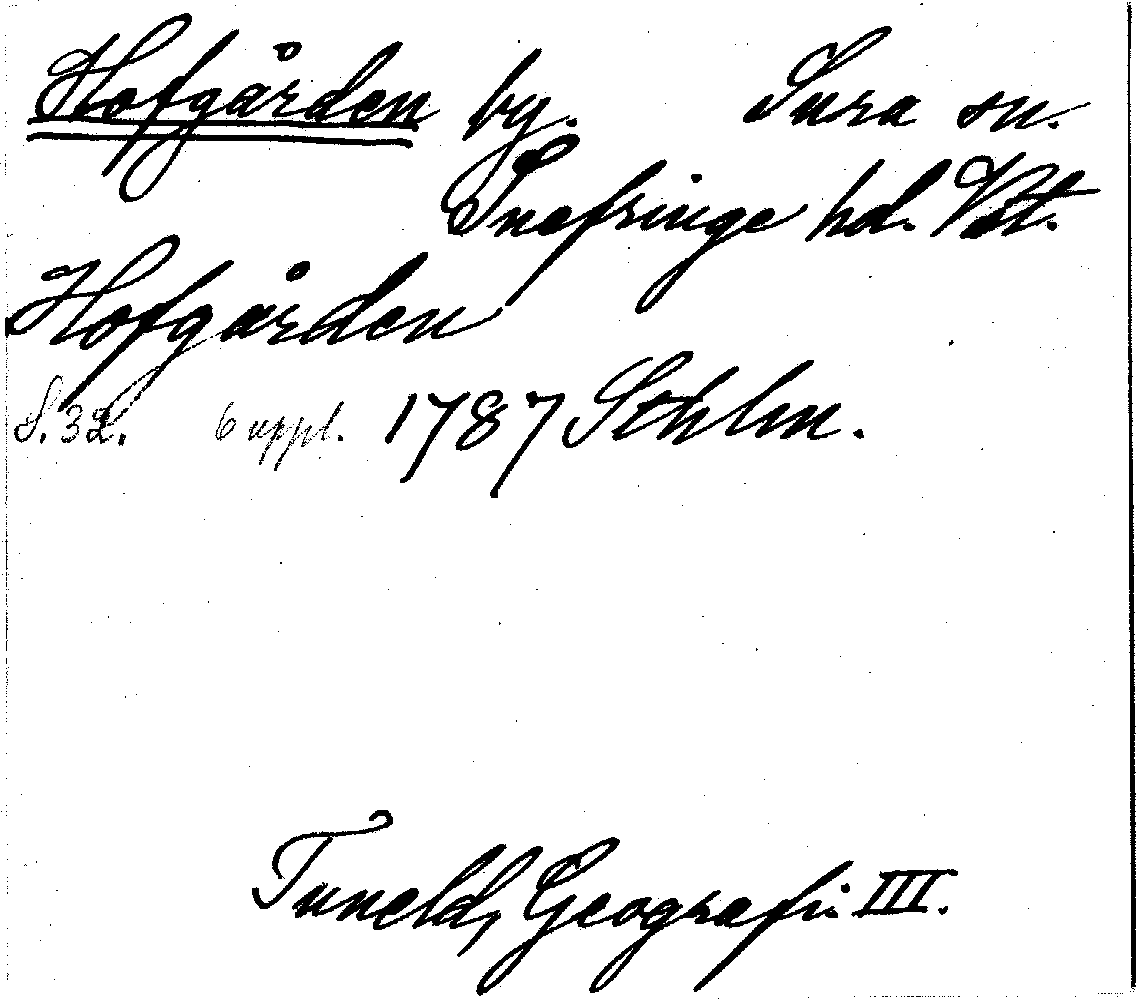 Hofgården by. Sura sn.
Snefringe hd. Vst.
Hofgården
S. 32. 6 uppl. 1787 Sthlm.
Tuneld, Geografi III.